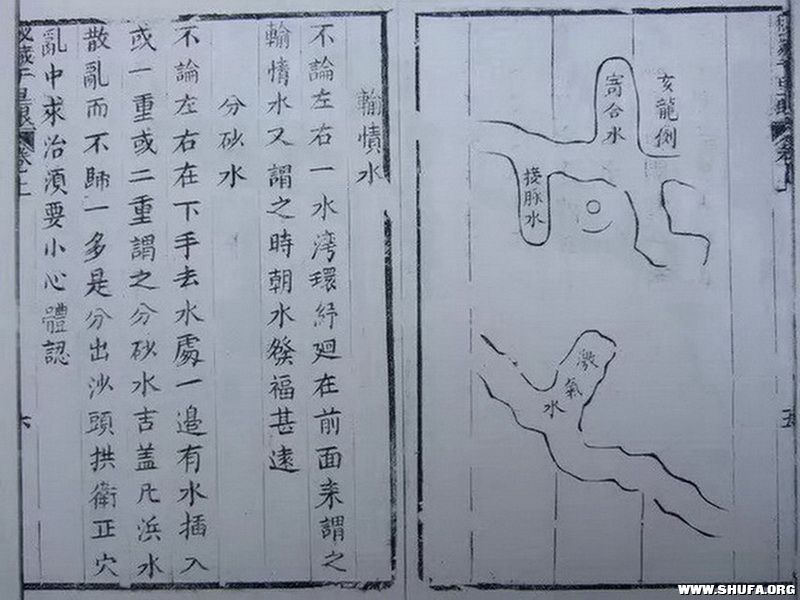 亥龍
寄合水
接脉水
激氣水
五
輸情水
不論左右一水湾環紓廻在前面来謂之
輸情水又謂之時朝水發福甚遠
分砂水
不論左右在下手去水處一邉有水插入
或一重或二重謂之分砂水吉盖凡浜水
散亂而不歸一多是分出沙頭拱衛正穴
亂中求治須要小心體認
六
WWW.SHUFA.ORG